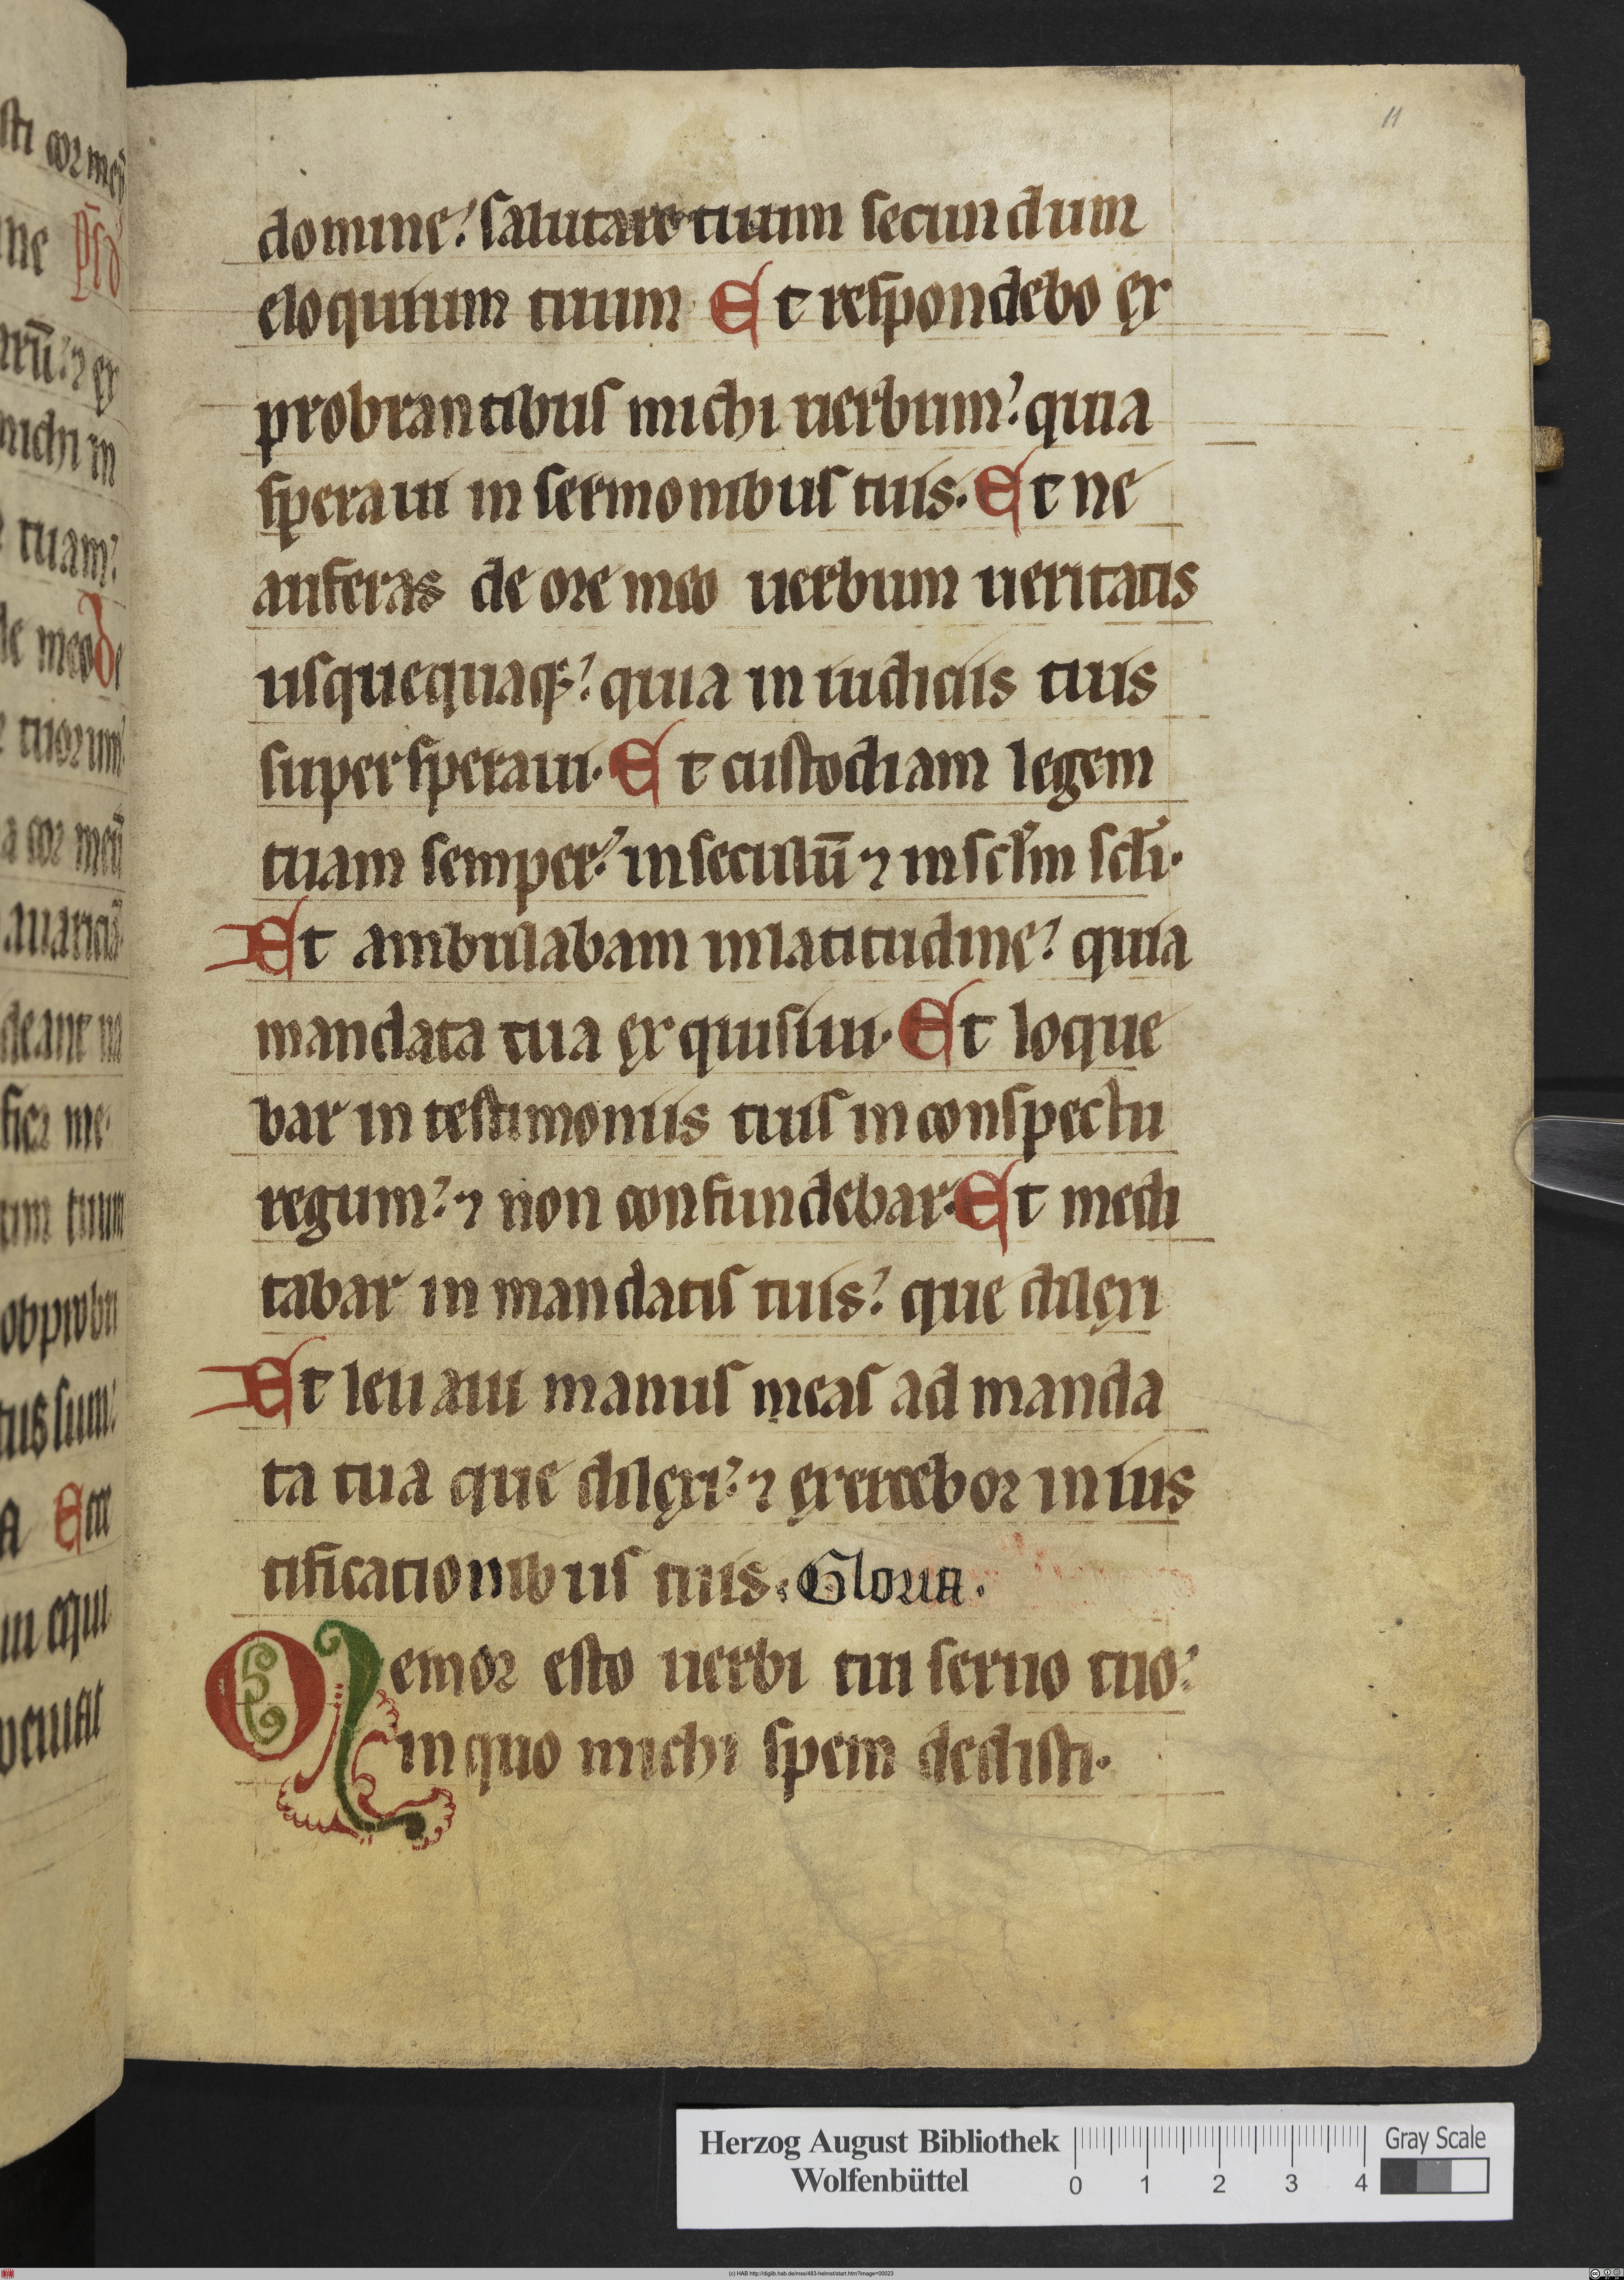 11
domine? salutare tuum secundum
eloquium tuum Et respondebo ex
probrantibus michi uerbum? quia
speraui in sermonibus tuis. Et ne
auferas de ore meo uerbum ueritatis
usquequaq;? quia in iudiciis tuis
supersperaui. Et custodiam legem
tuam semper? in seculū ⁊ in sclm scli.
Et ambulabam in latitudine? quia
mandata tua exquisiui. Et loque
bar in testimoniis tuis in conspectu
regum? ⁊ non confundebar. Et medi
tabar in mandatis tuis? que dilexi
Et leuaui manus meas ad manda
ta tua que dilexi? ⁊ exercebor in ius
tificationibus tuis. Gloria.
Memor esto uerbi tui seruo tuo?
in quo michi spem dedisti.
Herzog August Bibliothek
Wolfenbüttel
0 1 2 3 4
Gray Scale
(c) HAB http://diglib.hab.de/mss/483-helmst/start.htm?image=00023